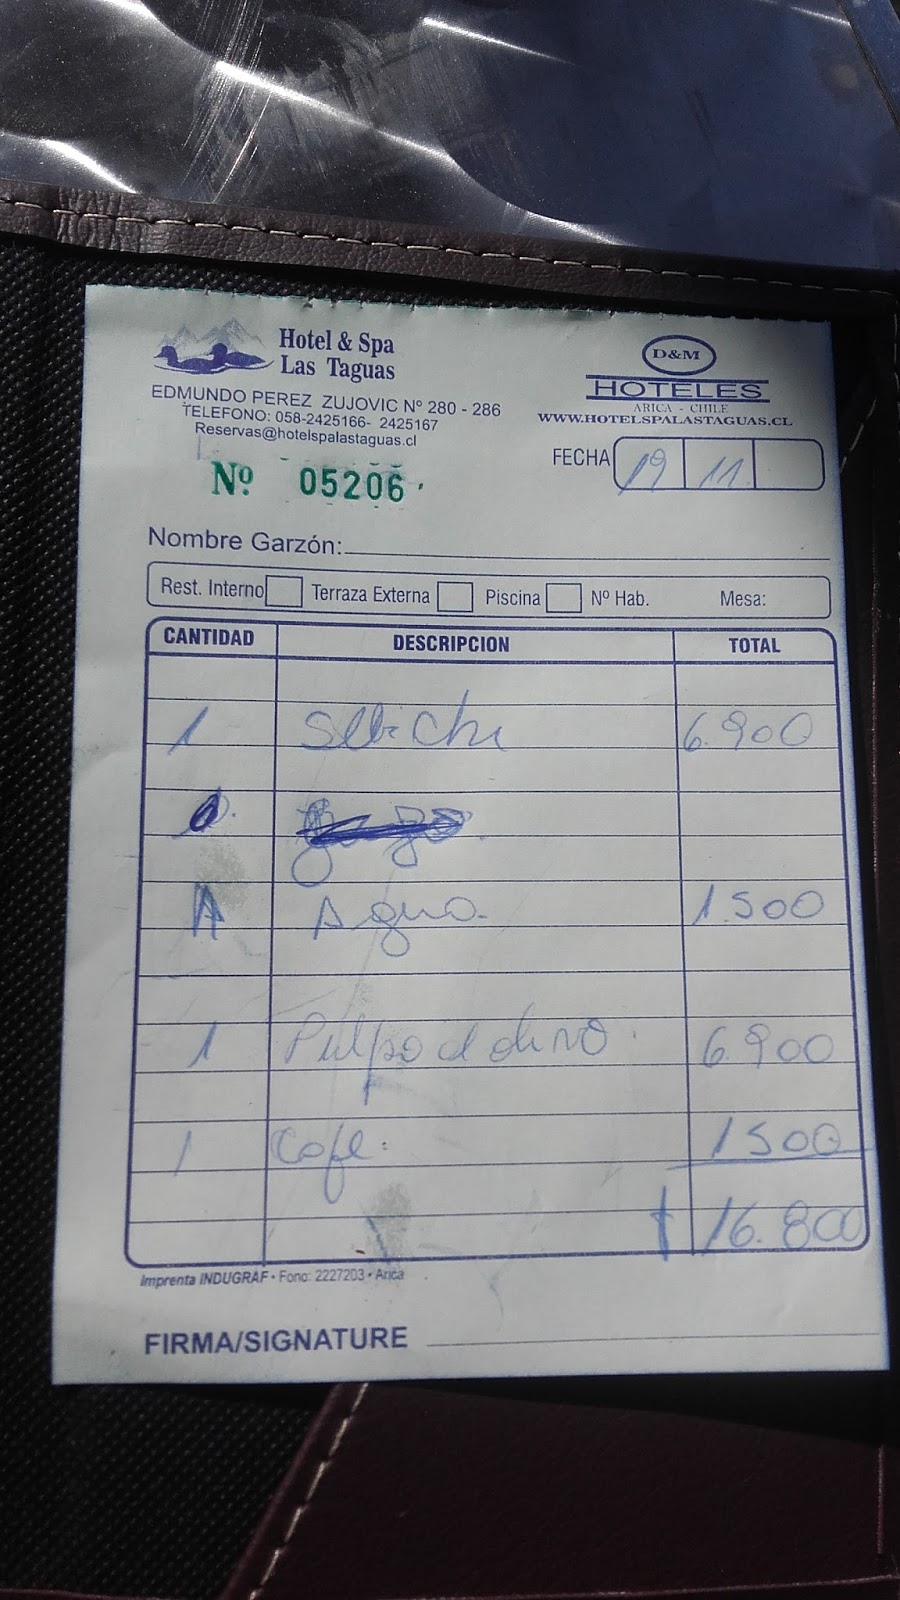 Hotel & Spa
Las Taguas
EDMUNDO PEREZ ZUJOVIC Nº 280 - 286
TELEFONO: 058-2425166- 2425167
Reservas@hotelspalastaguas.cl
D&M
HOTELES
ARICA - CHILE
WWW.HOTELSPALASTAGUAS.CL
Nº 05206
FECHA 19 11
Nombre Garzón:
Rest. Interno Terraza Externa Piscina Nº Hab. Mesa:
CANTIDAD DESCRIPCION TOTAL
1 6.900
1 Agua 1.500
1 Pulpo al olivo 6.900
1 Cafe 1500
16.800
Imprenta INDUGRAF • Fono: 2227203 • Arica
FIRMA/SIGNATURE